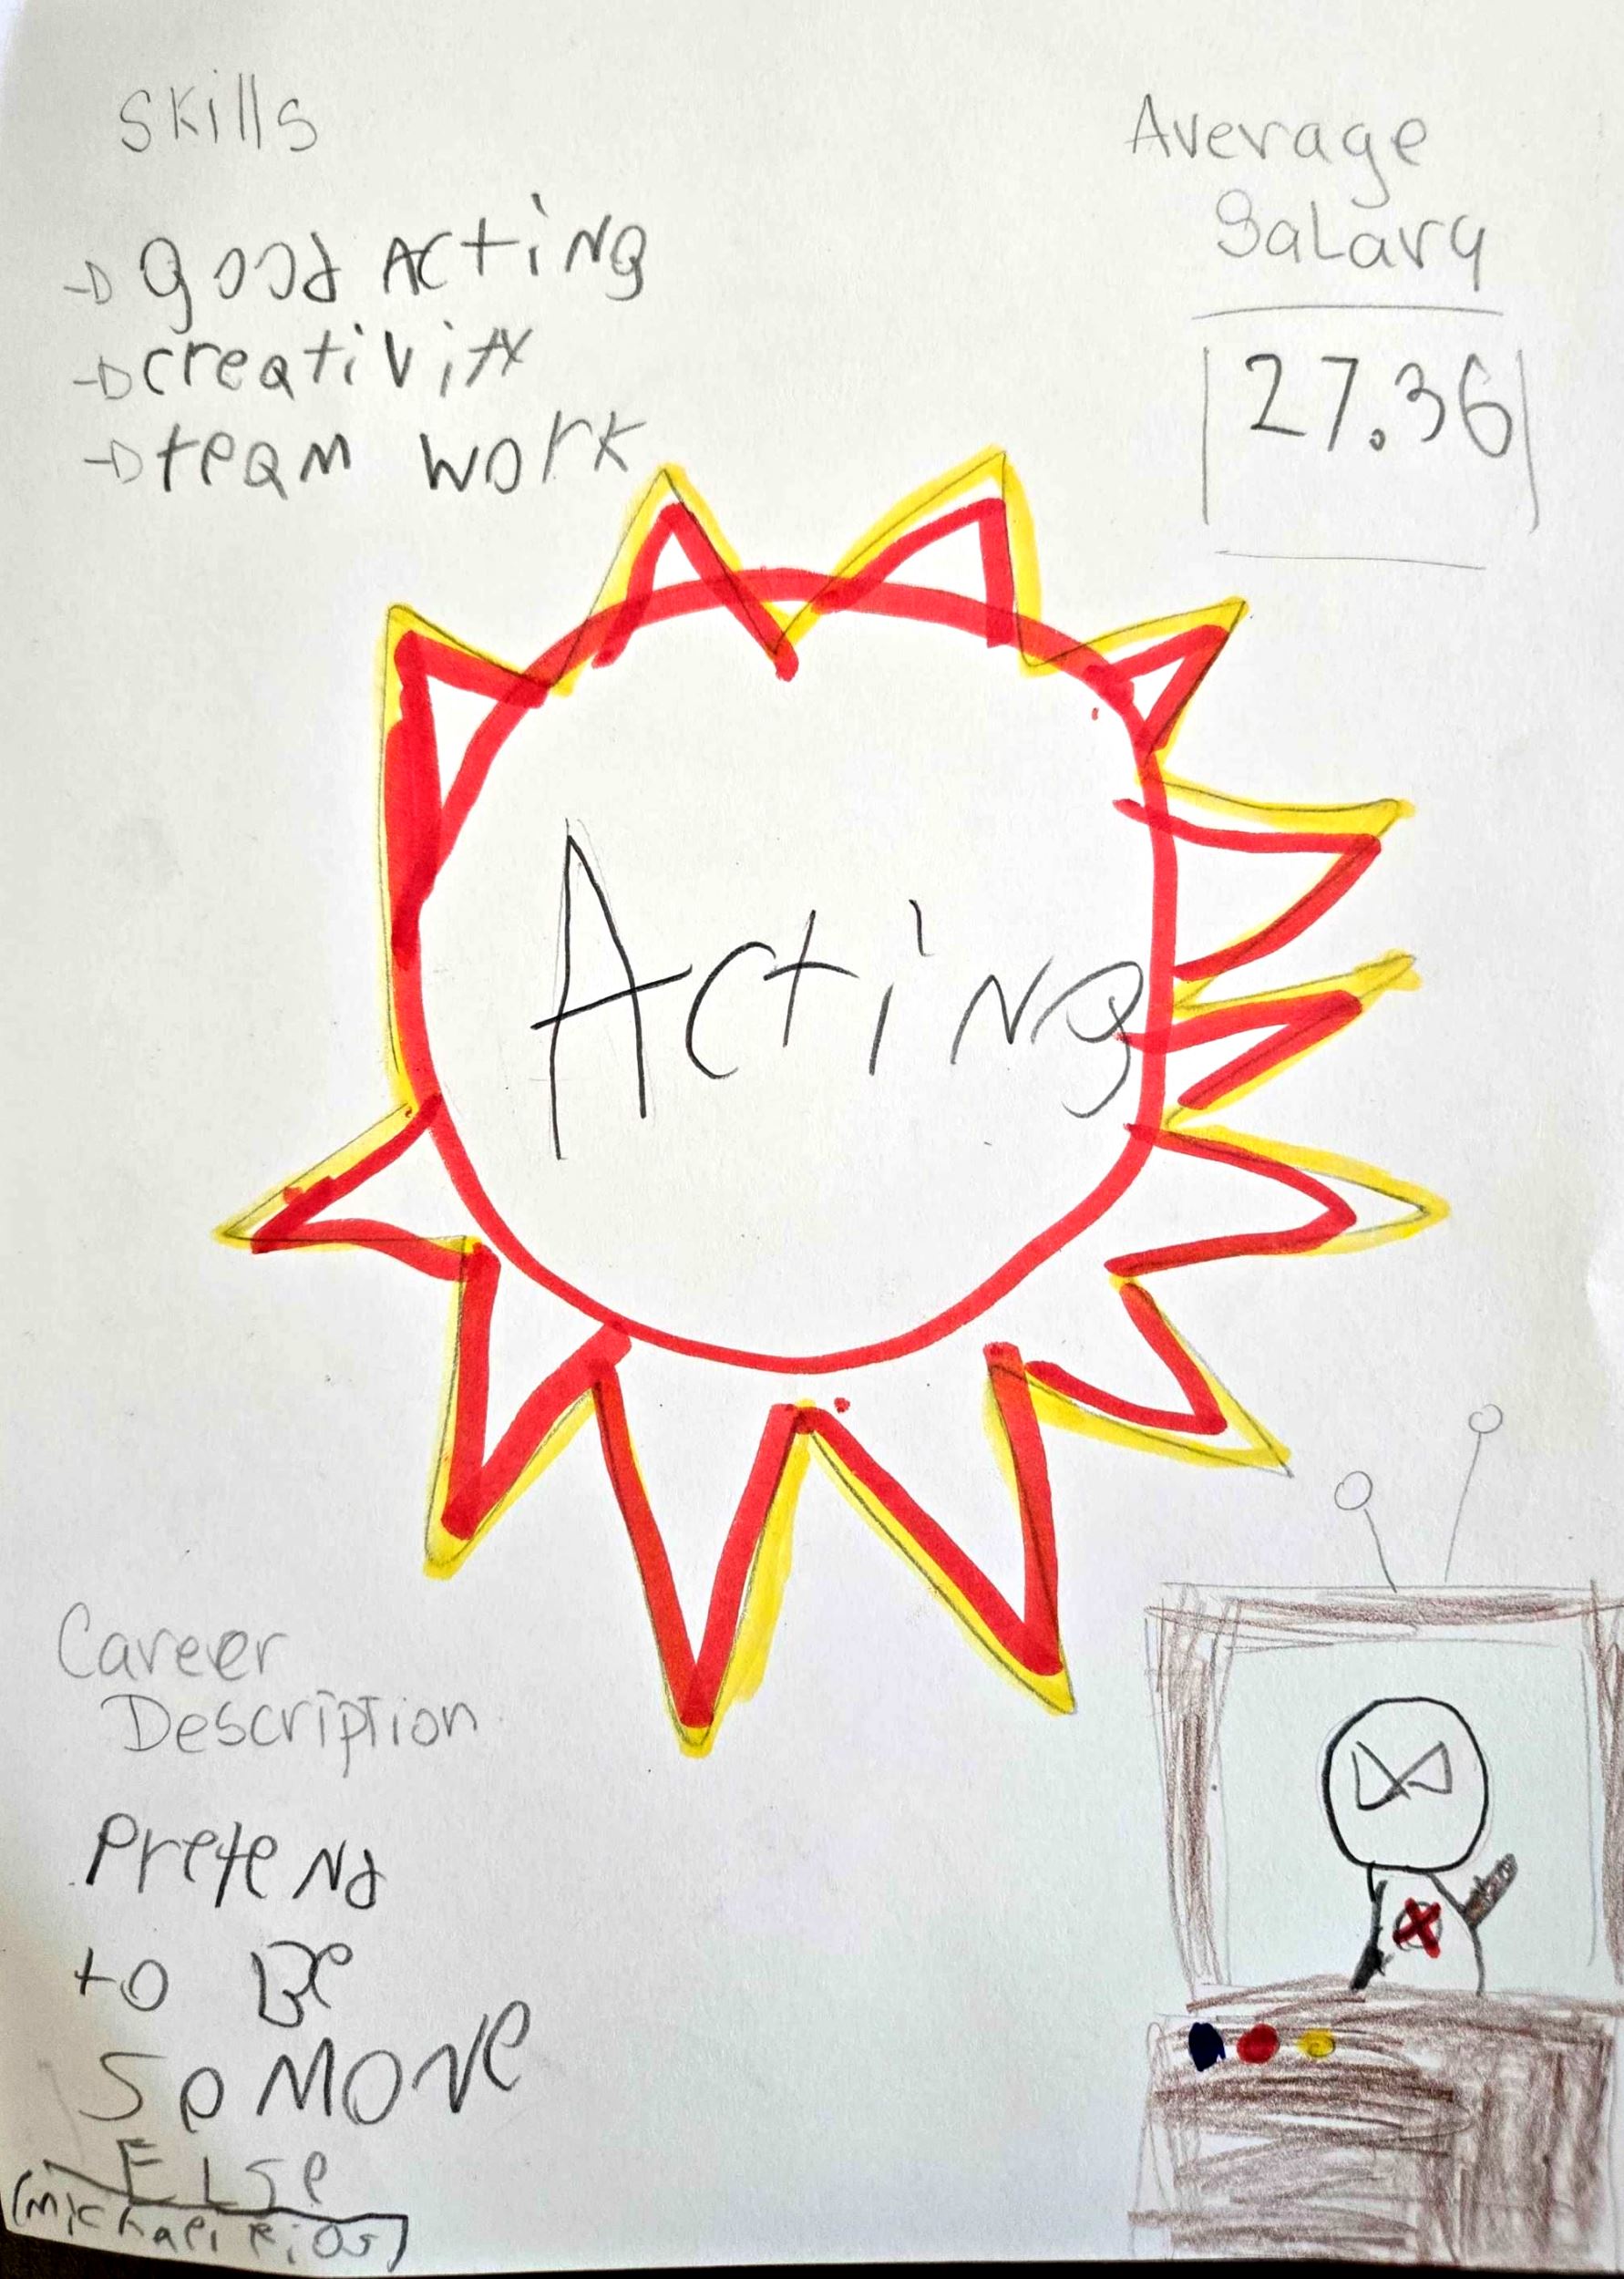 Skills
good Acting
creativity
team work
Average
Salary
27.36
Acting
Career
Description
Pretend
to Be
SoMONe
ELSe
(Michael Rios)